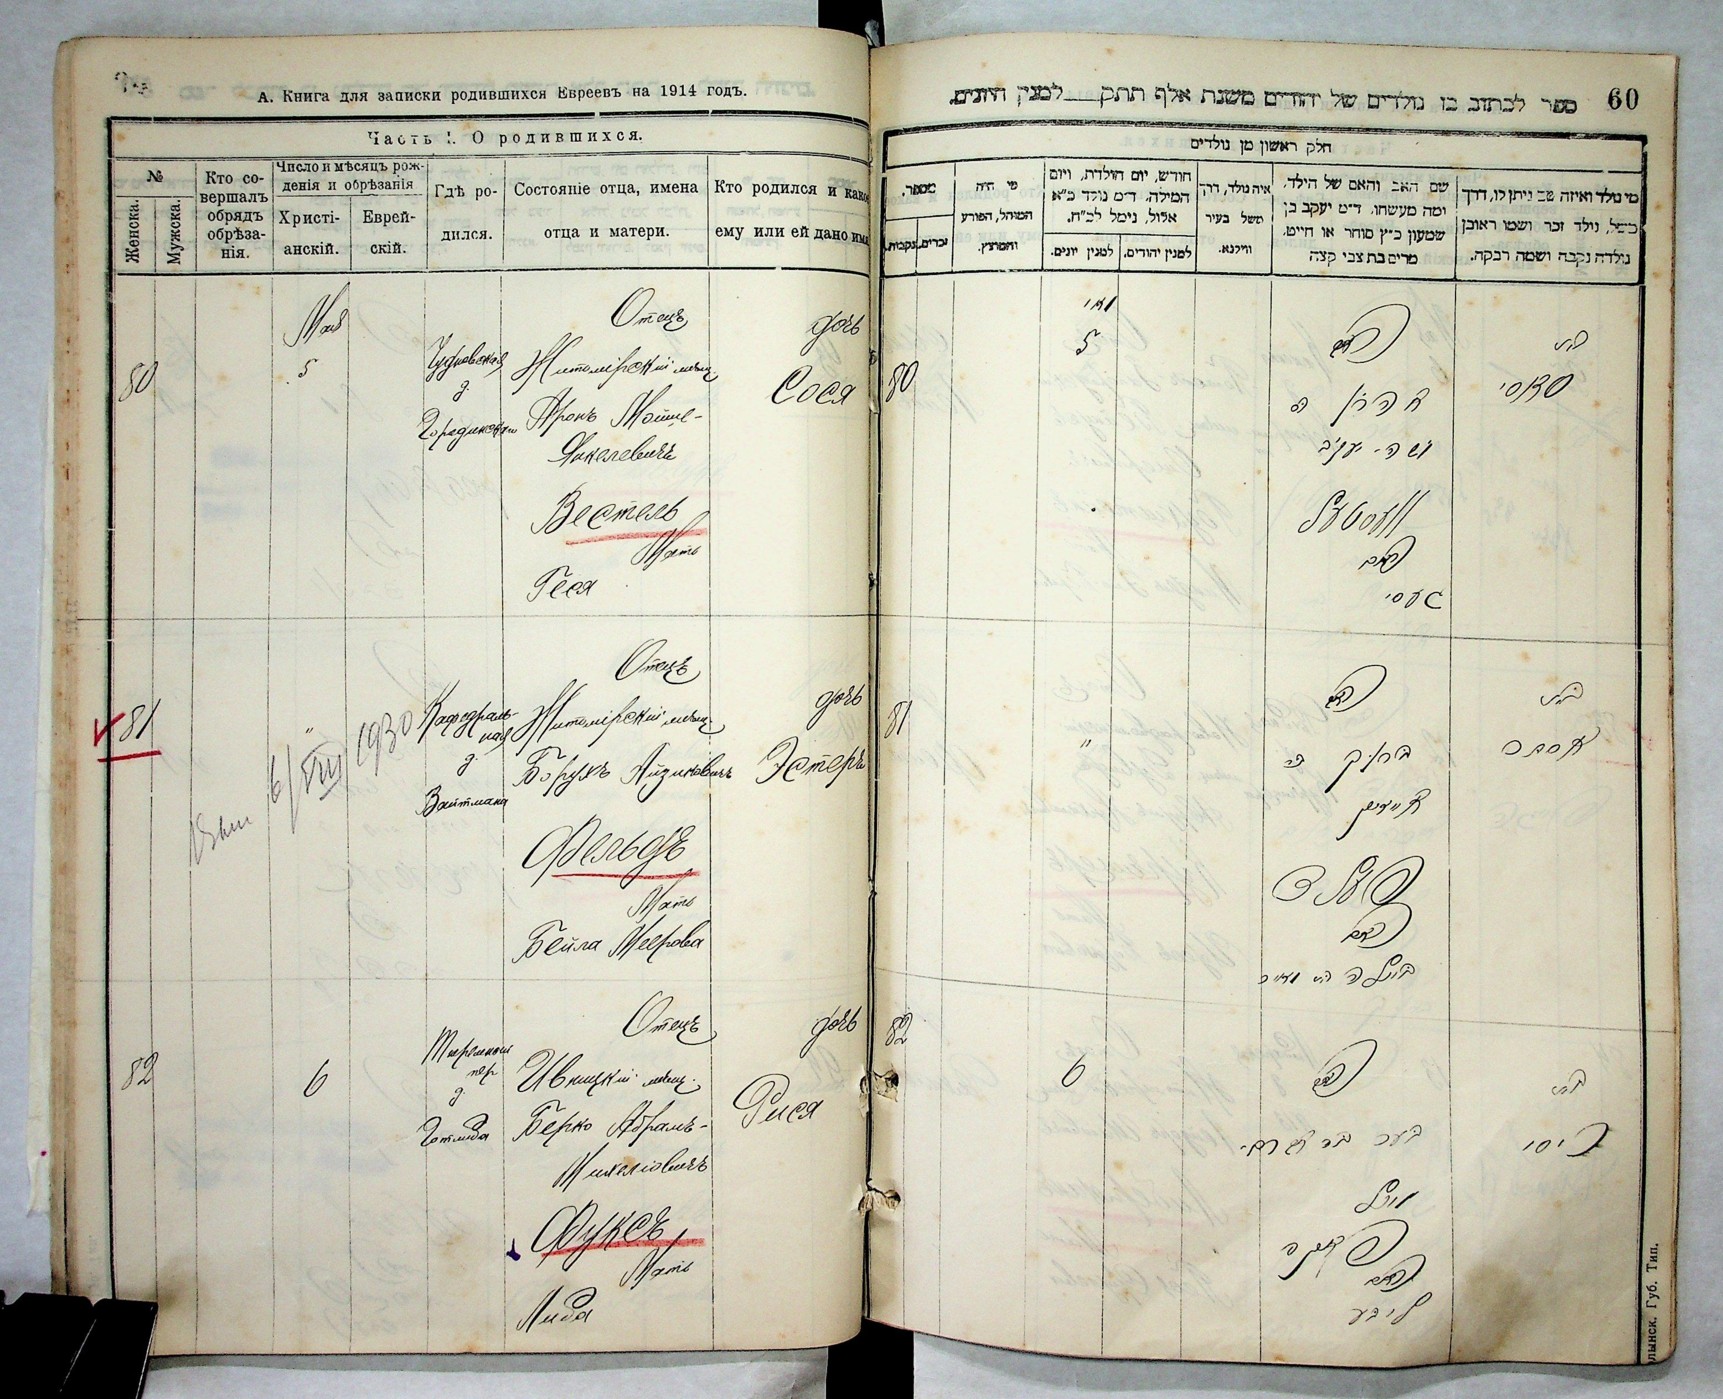 А. Книга для записки родившихся Евреевъ на 1914 годъ.
Часть I. О родившихся.
№
Женска.
Мужска.
Кто со-
вершалъ
обрядъ
обрѣза-
нія.
Число и мѣсяцъ рож-
денія и обрѣзанія
Христі-
анскій.
Еврей-
скій.
Гдѣ ро-
дился.
Состояніе отца, имена
отца и матери.
Кто родился и како
ему или ей дано имя
80
Май
5
Чудновская
д.
Отецъ
Житомірскій мѣщ.
Аронъ Мойше-
Янкелевичъ
Вестель
Мать
Геся
дочь
Сося
81
"
6/VIII 1930
Кафедраль-
ная
д.
Вайтмана
Отецъ
Житомірскій мѣщ.
Борухъ Айзиковичъ
Фельдъ
Мать
Бейла Меерова
дочь
Эстеръ
82
6
пер
д.
Готлиба
Отецъ
Ивницкій мѣщ.
Берко Абрамъ-
Михелiовичъ
Фуксъ
Мать
Либа
дочь
Рися
60
ספר לכתוב בו נולדים של יהודים משנת אלף תתק___למנין היונים.
חלק ראשון מן נולדים
מספר.
זכרים.
נקבות.
מי היה
המוהל, הפורע
והמוצץ.
חודש, יום הולדת, ויום
המילה. ד״מ נולד כ״א
אלול, נימל לכ״ח.
למנין יונים.
למנין יהודים.
איה נולד, דרך
משל בעיר
ווילנא.
שם האב והאם של הילד,
ומה מעשהו. ד״מ יעקב בן
שמעון כ״ץ סוחר או חייט.
מרים בת צבי קצה
מי נולד ואיזה שם ניתן לו, דרך
משל, נולד זכר ושמו ראובן
נולדה נקבה ושמה רבקה.
80
מאי
5
האב
אהרן
משה יעקב
וועסטעל
האם
געסי
בת
סאסי
81
"
האב
ברוך
אייזיק
פעלד
האם
ביילה בת מאיר
בת
אסתר
82
6
האב
בערי בר אברהם
מיכל
פוקס
האם
ליבע
בת
ריסי
лынск. Губ. Тип.